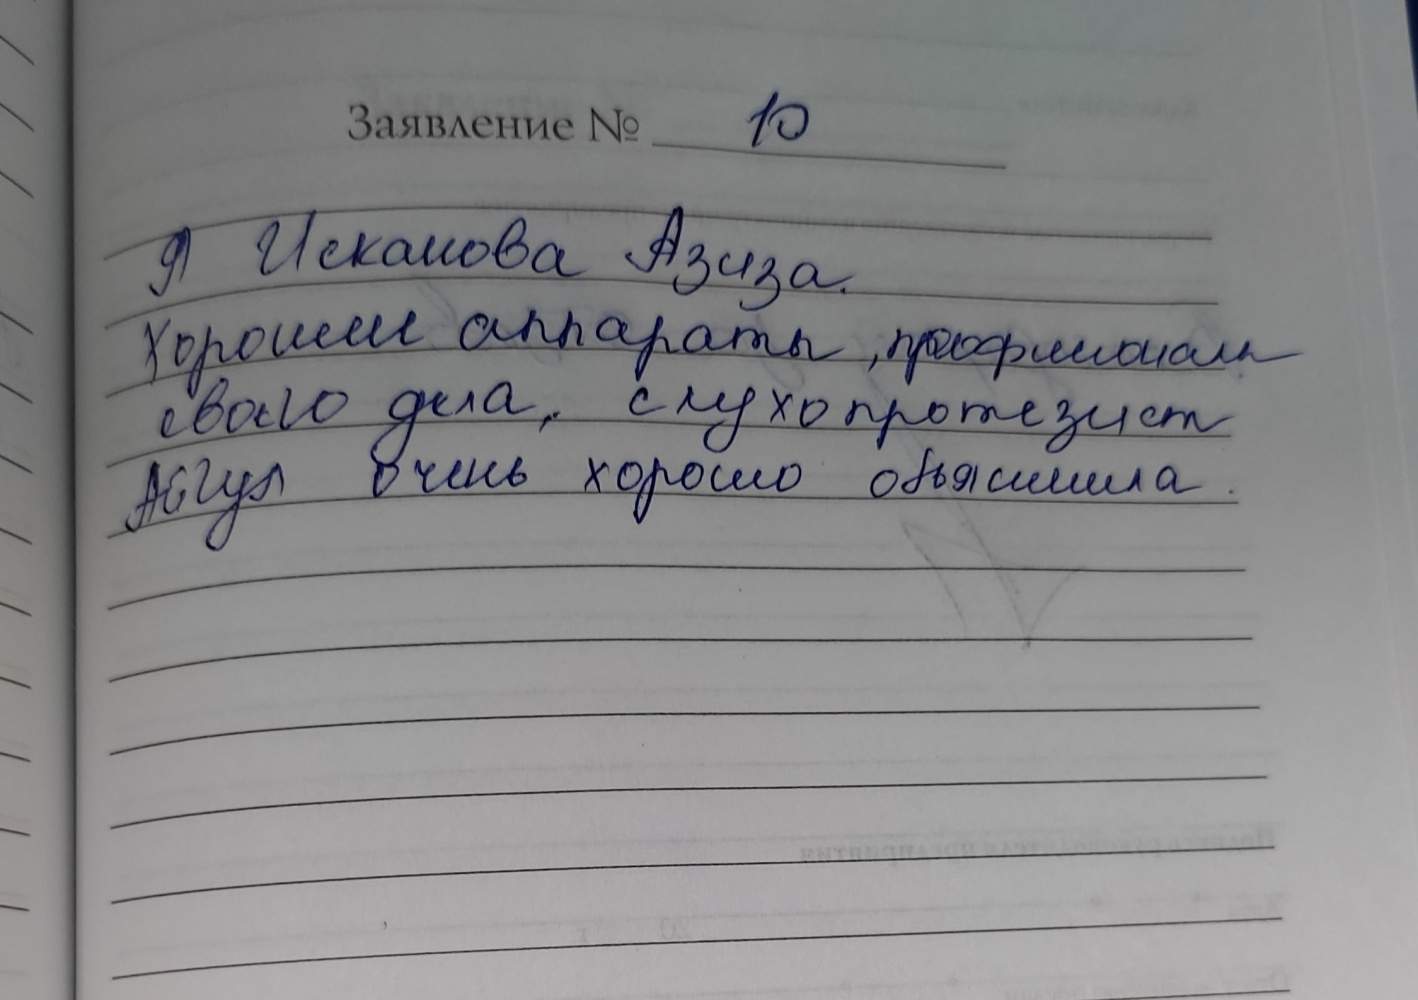 Заявление № 10
Я Искакова Азиза.
Хорошии аппараты, проофишионалы
своего дела, слухопротезист
Айгул очень хорошо обьяснила.